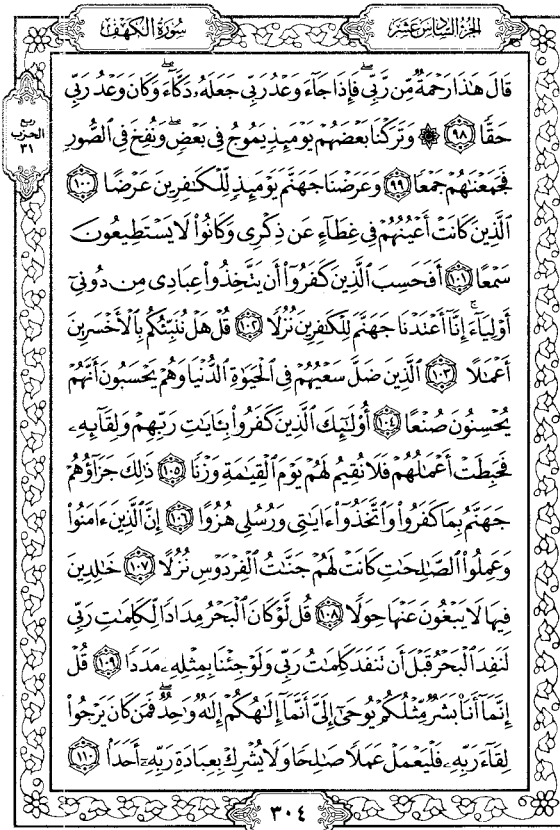 الجزء السادس عشر
سورة الكهف
قَالَ هَٰذَا رَحْمَةٌ مِّن رَّبِّي ۖ فَإِذَا جَآءَ وَعْدُ رَبِّي جَعَلَهُۥ دَكَّآءَ ۖ وَكَانَ وَعْدُ رَبِّي
حَقًّا ٩٨ ۞ وَتَرَكْنَا بَعْضَهُمْ يَوْمَئِذٍ يَمُوجُ فِي بَعْضٍ ۖ وَنُفِخَ فِي الصُّورِ
ربع
الحزب
٣١
فَجَمَعْنَٰهُمْ جَمْعًا ٩٩ وَعَرَضْنَا جَهَنَّمَ يَوْمَئِذٍ لِّلْكَٰفِرِينَ عَرْضًا ١٠٠
الَّذِينَ كَانَتْ أَعْيُنُهُمْ فِي غِطَآءٍ عَن ذِكْرِي وَكَانُوا۟ لَا يَسْتَطِيعُونَ
سَمْعًا ١٠١ أَفَحَسِبَ الَّذِينَ كَفَرُوٓا۟ أَن يَتَّخِذُوا۟ عِبَادِي مِن دُونِيٓ
أَوْلِيَآءَ ۚ إِنَّآ أَعْتَدْنَا جَهَنَّمَ لِلْكَٰفِرِينَ نُزُلًا ١٠٢ قُلْ هَلْ نُنَبِّئُكُم بِالْأَخْسَرِينَ
أَعْمَٰلًا ١٠٣ الَّذِينَ ضَلَّ سَعْيُهُمْ فِي الْحَيَوٰةِ الدُّنْيَا وَهُمْ يَحْسَبُونَ أَنَّهُمْ
يُحْسِنُونَ صُنْعًا ١٠٤ أُو۟لَٰٓئِكَ الَّذِينَ كَفَرُوا۟ بِـَٔايَٰتِ رَبِّهِمْ وَلِقَآئِهِۦ
فَحَبِطَتْ أَعْمَٰلُهُمْ فَلَا نُقِيمُ لَهُمْ يَوْمَ الْقِيَٰمَةِ وَزْنًا ١٠٥ ذَٰلِكَ جَزَآؤُهُمْ
جَهَنَّمُ بِمَا كَفَرُوا۟ وَاتَّخَذُوٓا۟ ءَايَٰتِي وَرُسُلِي هُزُوًا ١٠٦ إِنَّ الَّذِينَ ءَامَنُوا۟
وَعَمِلُوا۟ الصَّٰلِحَٰتِ كَانَتْ لَهُمْ جَنَّٰتُ الْفِرْدَوْسِ نُزُلًا ١٠٧ خَٰلِدِينَ
فِيهَا لَا يَبْغُونَ عَنْهَا حِوَلًا ١٠٨ قُل لَّوْ كَانَ الْبَحْرُ مِدَادًا لِّكَلِمَٰتِ رَبِّي
لَنَفِدَ الْبَحْرُ قَبْلَ أَن تَنفَدَ كَلِمَٰتُ رَبِّي وَلَوْ جِئْنَا بِمِثْلِهِۦ مَدَدًا ١٠٩ قُلْ
إِنَّمَآ أَنَا۠ بَشَرٌ مِّثْلُكُمْ يُوحَىٰٓ إِلَيَّ أَنَّمَآ إِلَٰهُكُمْ إِلَٰهٌ وَٰحِدٌ ۖ فَمَن كَانَ يَرْجُوا۟
لِقَآءَ رَبِّهِۦ فَلْيَعْمَلْ عَمَلًا صَٰلِحًا وَلَا يُشْرِكْ بِعِبَادَةِ رَبِّهِۦٓ أَحَدًا ١١٠
٣٠٤